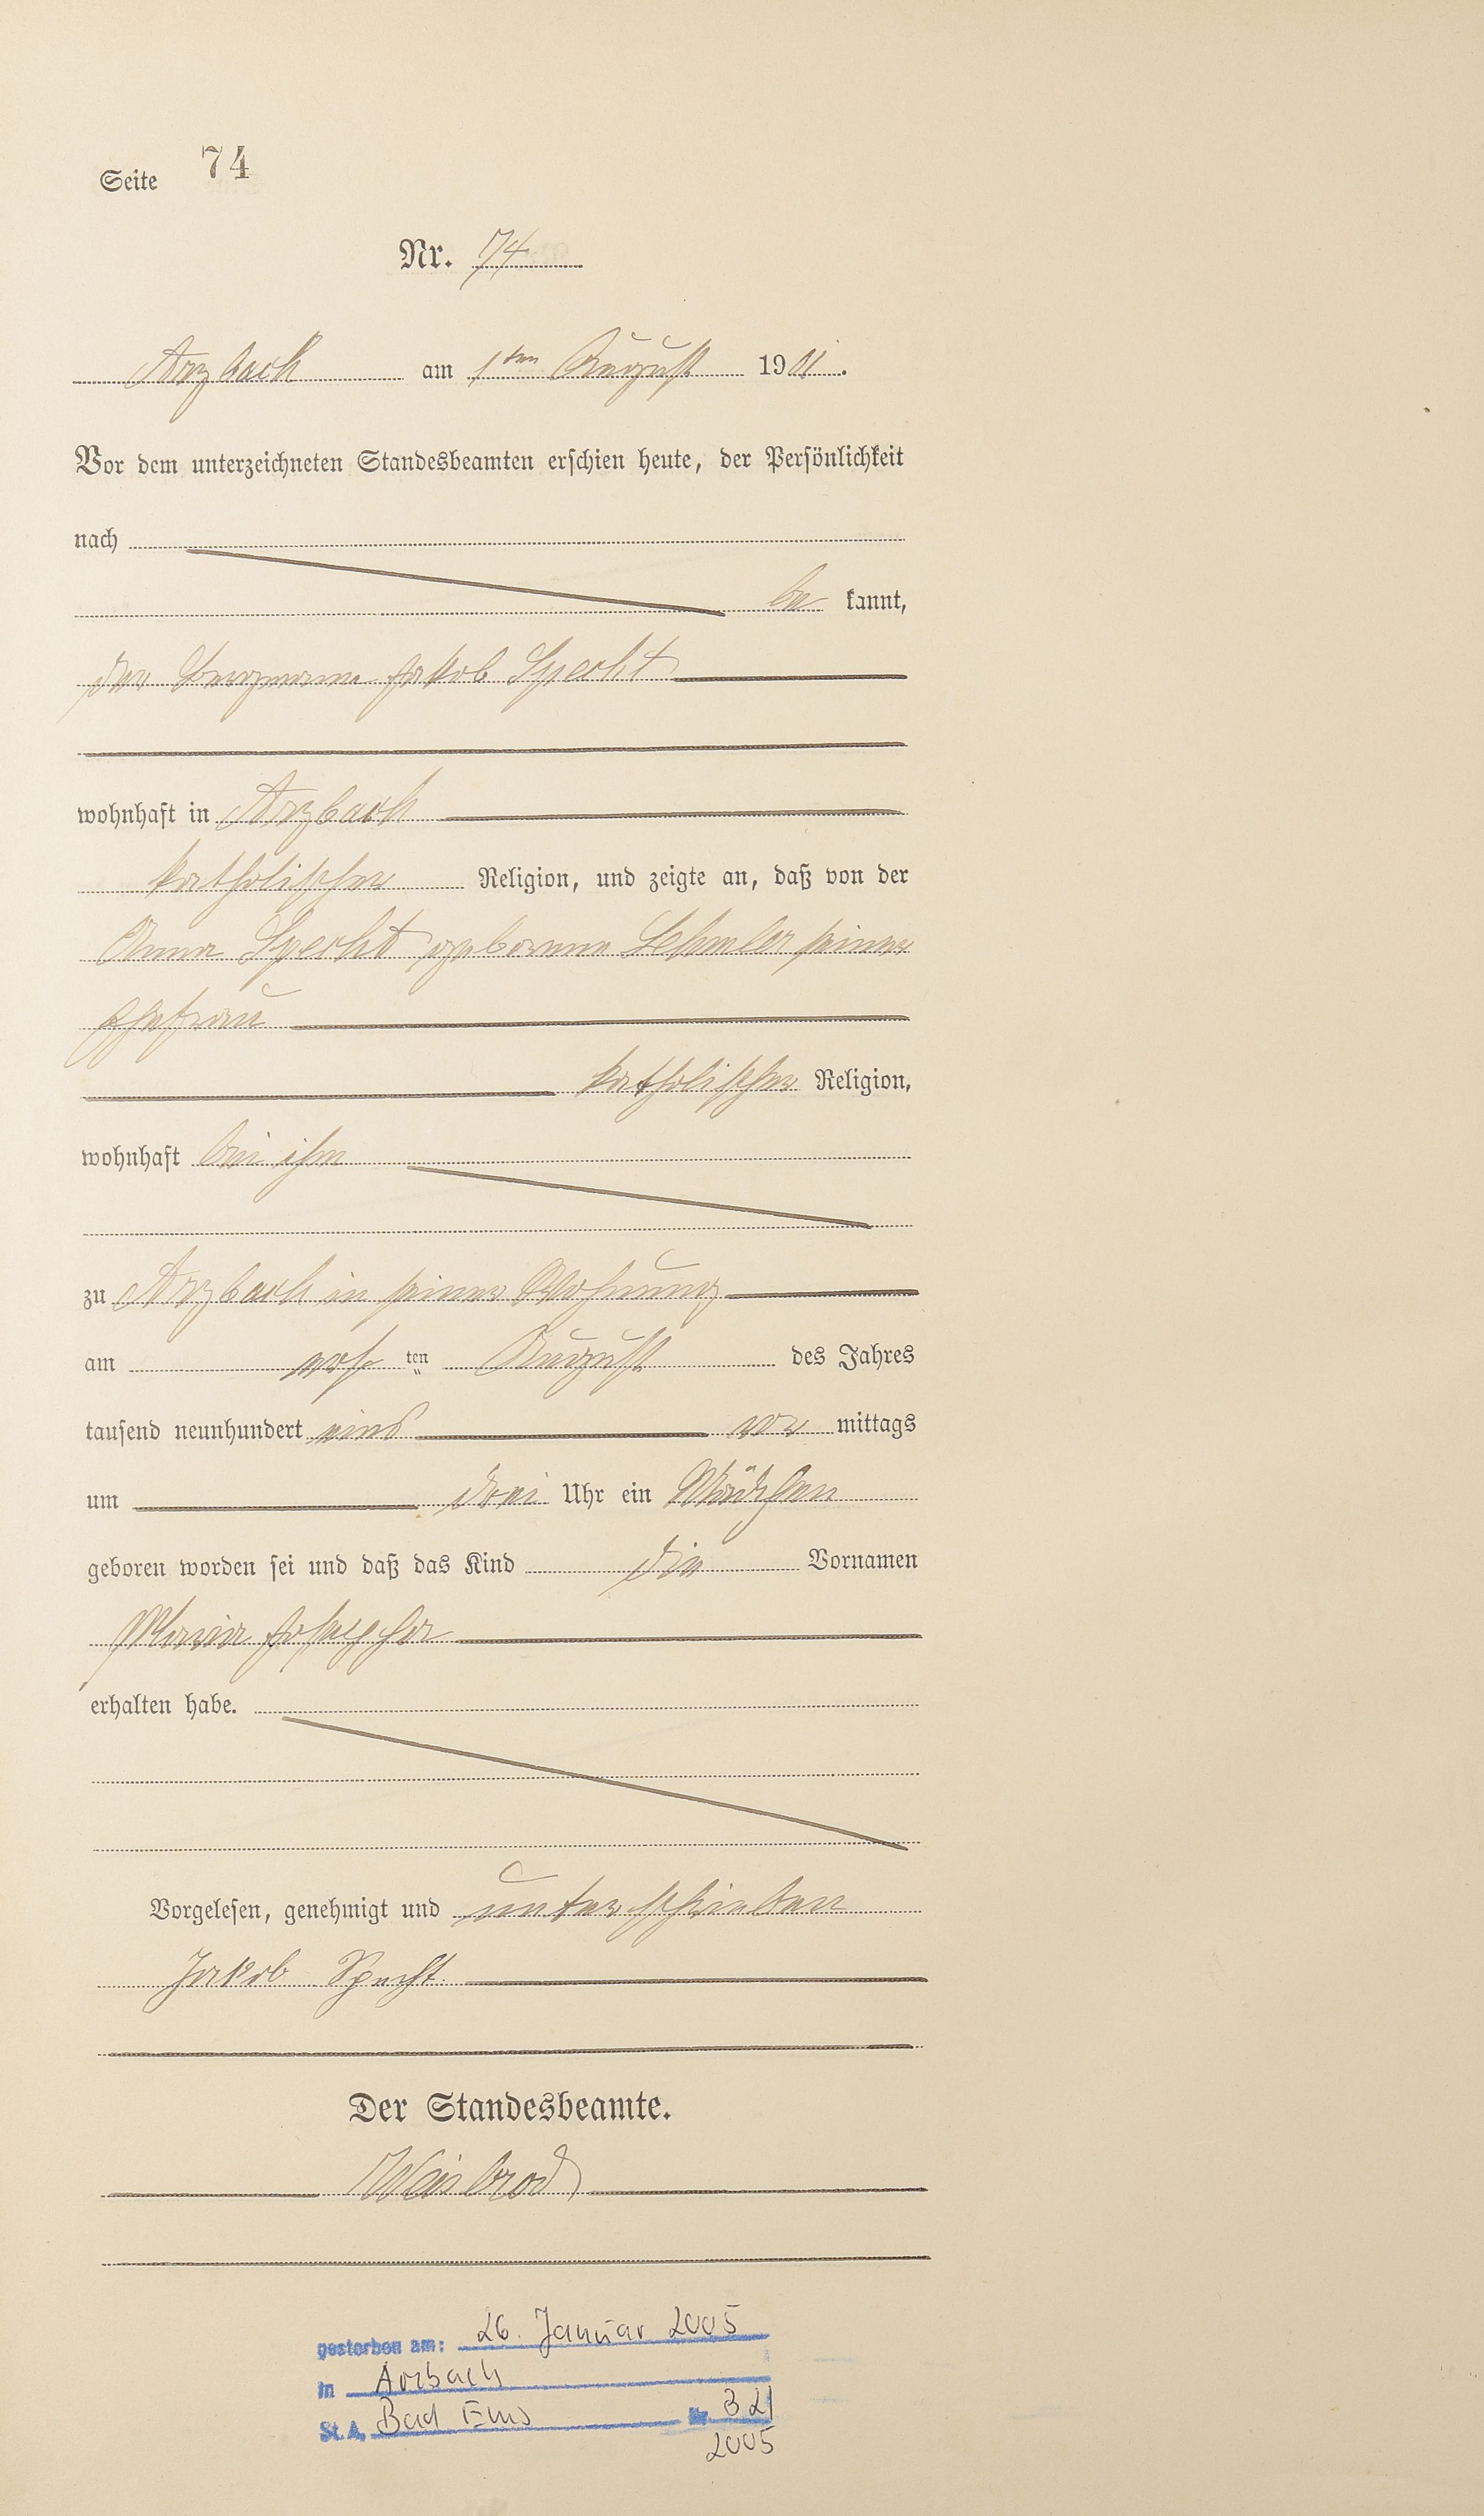 Seite 74
Nr. 74
Arzbach am 1ten August 1901.
Vor dem unterzeichneten Standesbeamten erschien heute, der Persönlichkeit
nach
be kannt,
der Bergmann Jakob Specht
wohnhaft in Arzbach
katholischer Religion, und zeigte an, daß von der
Anna Specht geborenen seiner
Ehefrau
katholischer Religion,
wohnhaft bei ihm
zu Arzbach in seiner Wohnung
am ten August des Jahres
tausend neunhundert eins vor mittags
um drei Uhr ein Mädchen
geboren worden sei und daß das Kind die Vornamen
Maria Josepha
erhalten habe.
Vorgelesen, genehmigt und unterschrieben
Jakob Specht
Der Standesbeamte.
Weisbrod
gestorben am: 26. Januar 2005
in Arzbach
St. A. Bad Ems Nr. 32/
2005